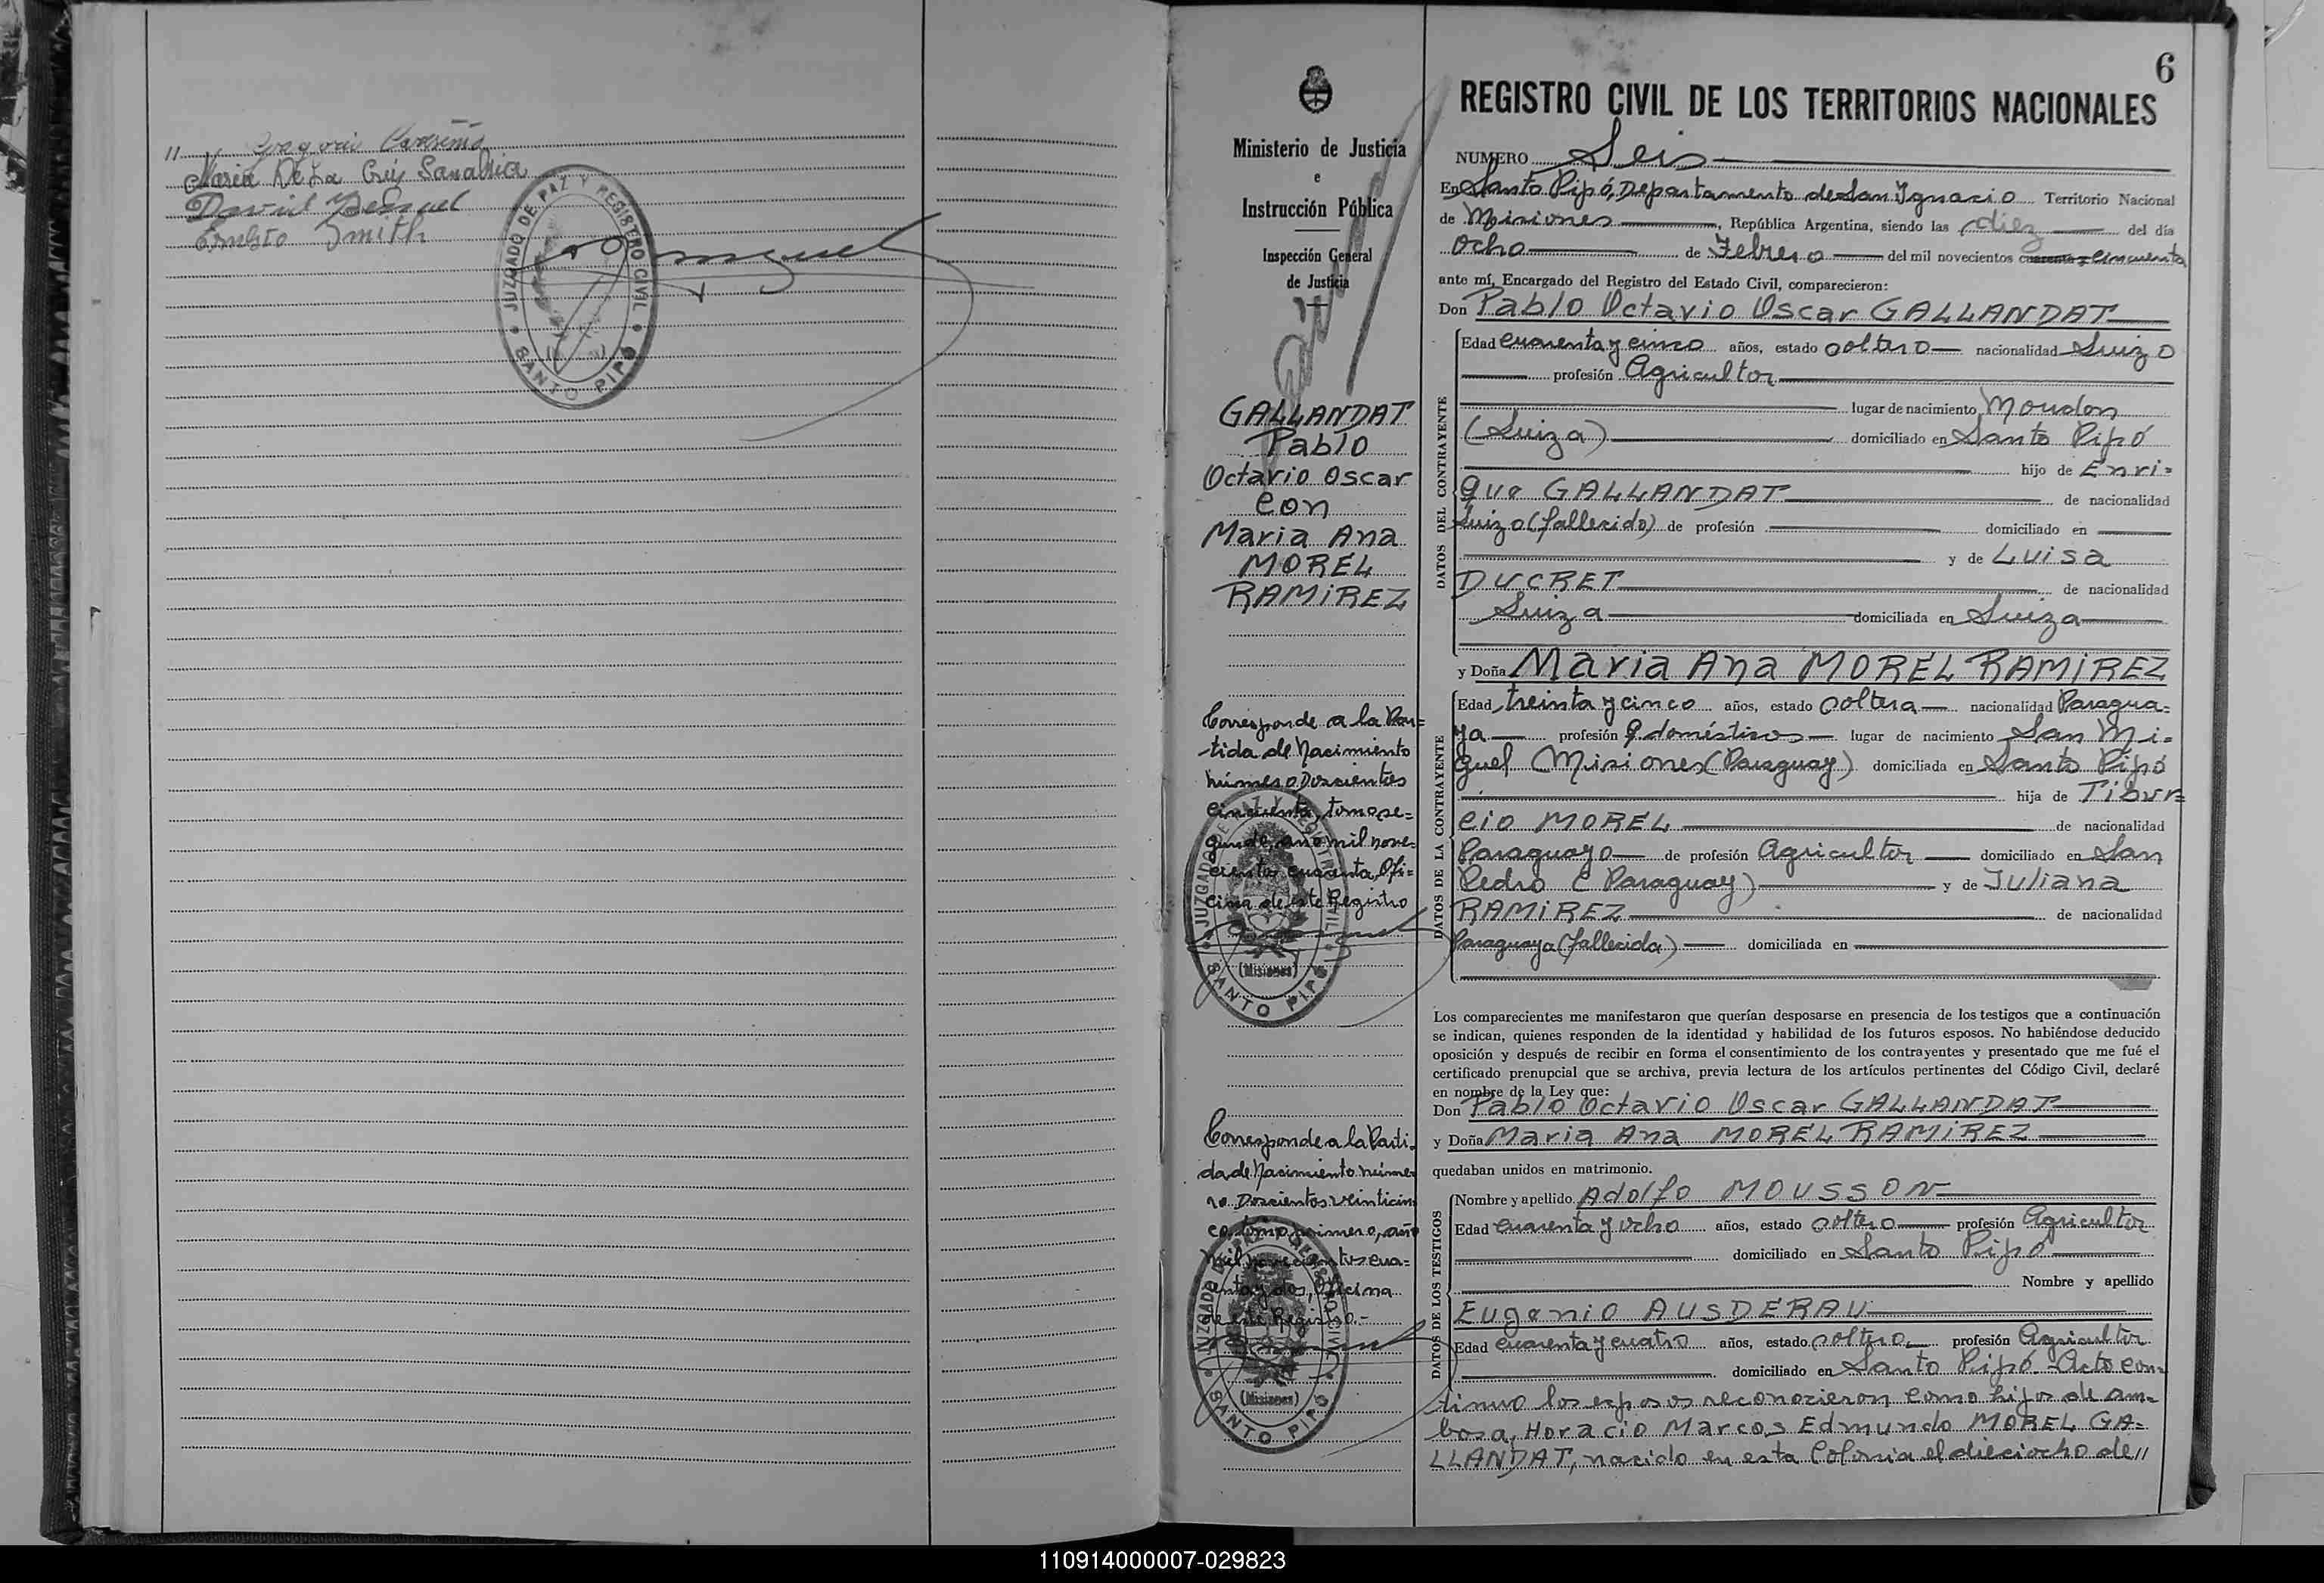 "
Maria De La Cruz Sanabria
Ernesto Smith
JUZGADO DE PAZ Y REGISTRO CIVIL
SANTO PIPÓ
Ministerio de Justicia
e
Instrucción Pública
Inspección General
de Justicia
GALLANDAT
Pablo
Octavio Oscar
con
Maria Ana
MOREL
RAMIREZ
Corresponde a la Par=
tida de Nacimiento
número Doscientos
cincuenta, tomo se=
gundo, año mil nove=
cientos cuarenta, Ofi=
cina de este Registro
JUZGADO DE PAZ Y REGISTRO CIVIL
(Misiones)
SANTO PIPÓ
Corresponde a la Parti-
da de Nacimiento núme-
ro Doscientos veinticin
co, tomo primero, año
mil novecientos cua=
renta y dos, Oficina
de este Registro.-
JUZGADO DE PAZ Y REGISTRO CIVIL
(Misiones)
SANTO PIPÓ
6
REGISTRO CIVIL DE LOS TERRITORIOS NACIONALES
NUMERO Seis
En Santo Pipó, Departamento de San Ygnacio Territorio Nacional
de Misiones, República Argentina, siendo las diez del día
ocho de Febrero del mil novecientos cuarenta y cincuenta
ante mí, Encargado del Registro del Estado Civil, comparecieron:
Don Pablo Octavio Oscar GALLANDAT
DATOS DEL CONTRAYENTE
Edad cuarenta y cinco años, estado soltero nacionalidad Suizo
profesión Agricultor
lugar de nacimiento Moudon
(Suiza) domiciliado en Santo Pipó
hijo de Enri=
que GALLANDAT de nacionalidad
Suizo (fallecido) de profesión domiciliado en
y de Luisa
DUCRET de nacionalidad
Suiza domiciliada en Suiza
y Doña Maria Ana MOREL RAMIREZ
DATOS DE LA CONTRAYENTE
Edad treinta y cinco años, estado soltera nacionalidad Paragua=
ya profesión Q. domésticos lugar de nacimiento San Mi=
guel (Misiones (Paraguay) domiciliada en Santo Pipó
hija de Tibur=
cio MOREL de nacionalidad
Paraguayo de profesión Agricultor domiciliado en San
Pedro (Paraguay) y de Juliana
RAMIREZ de nacionalidad
Paraguaya (fallecida) domiciliada en
Los comparecientes me manifestaron que querían desposarse en presencia de los testigos que a continuación
se indican, quienes responden de la identidad y habilidad de los futuros esposos. No habiéndose deducido
oposición y después de recibir en forma el consentimiento de los contrayentes y presentado que me fué el
certificado prenupcial que se archiva, previa lectura de los artículos pertinentes del Código Civil, declaré
en nombre de la Ley que:
Don Pablo Octavio Oscar GALLANDAT
y Doña Maria Ana MOREL RAMIREZ
quedaban unidos en matrimonio.
DATOS DE LOS TESTIGOS
Nombre y apellido Adolfo MOUSSON
Edad cuarenta y ocho años, estado soltero profesión Agricultor
domiciliado en Santo Pipó
Nombre y apellido
Eugenio AUSDERAU
Edad cuarenta y cuatro años, estado soltero profesión Agricultor
domiciliado en Santo Pipó.-Acto con=
tinuo los esposos reconocieron como hijos de am=
bos a, Horacio Marcos Edmundo MOREL GA=
LLANDAT, nacido en esta Colonia el dieciocho de "
110914000007-029823